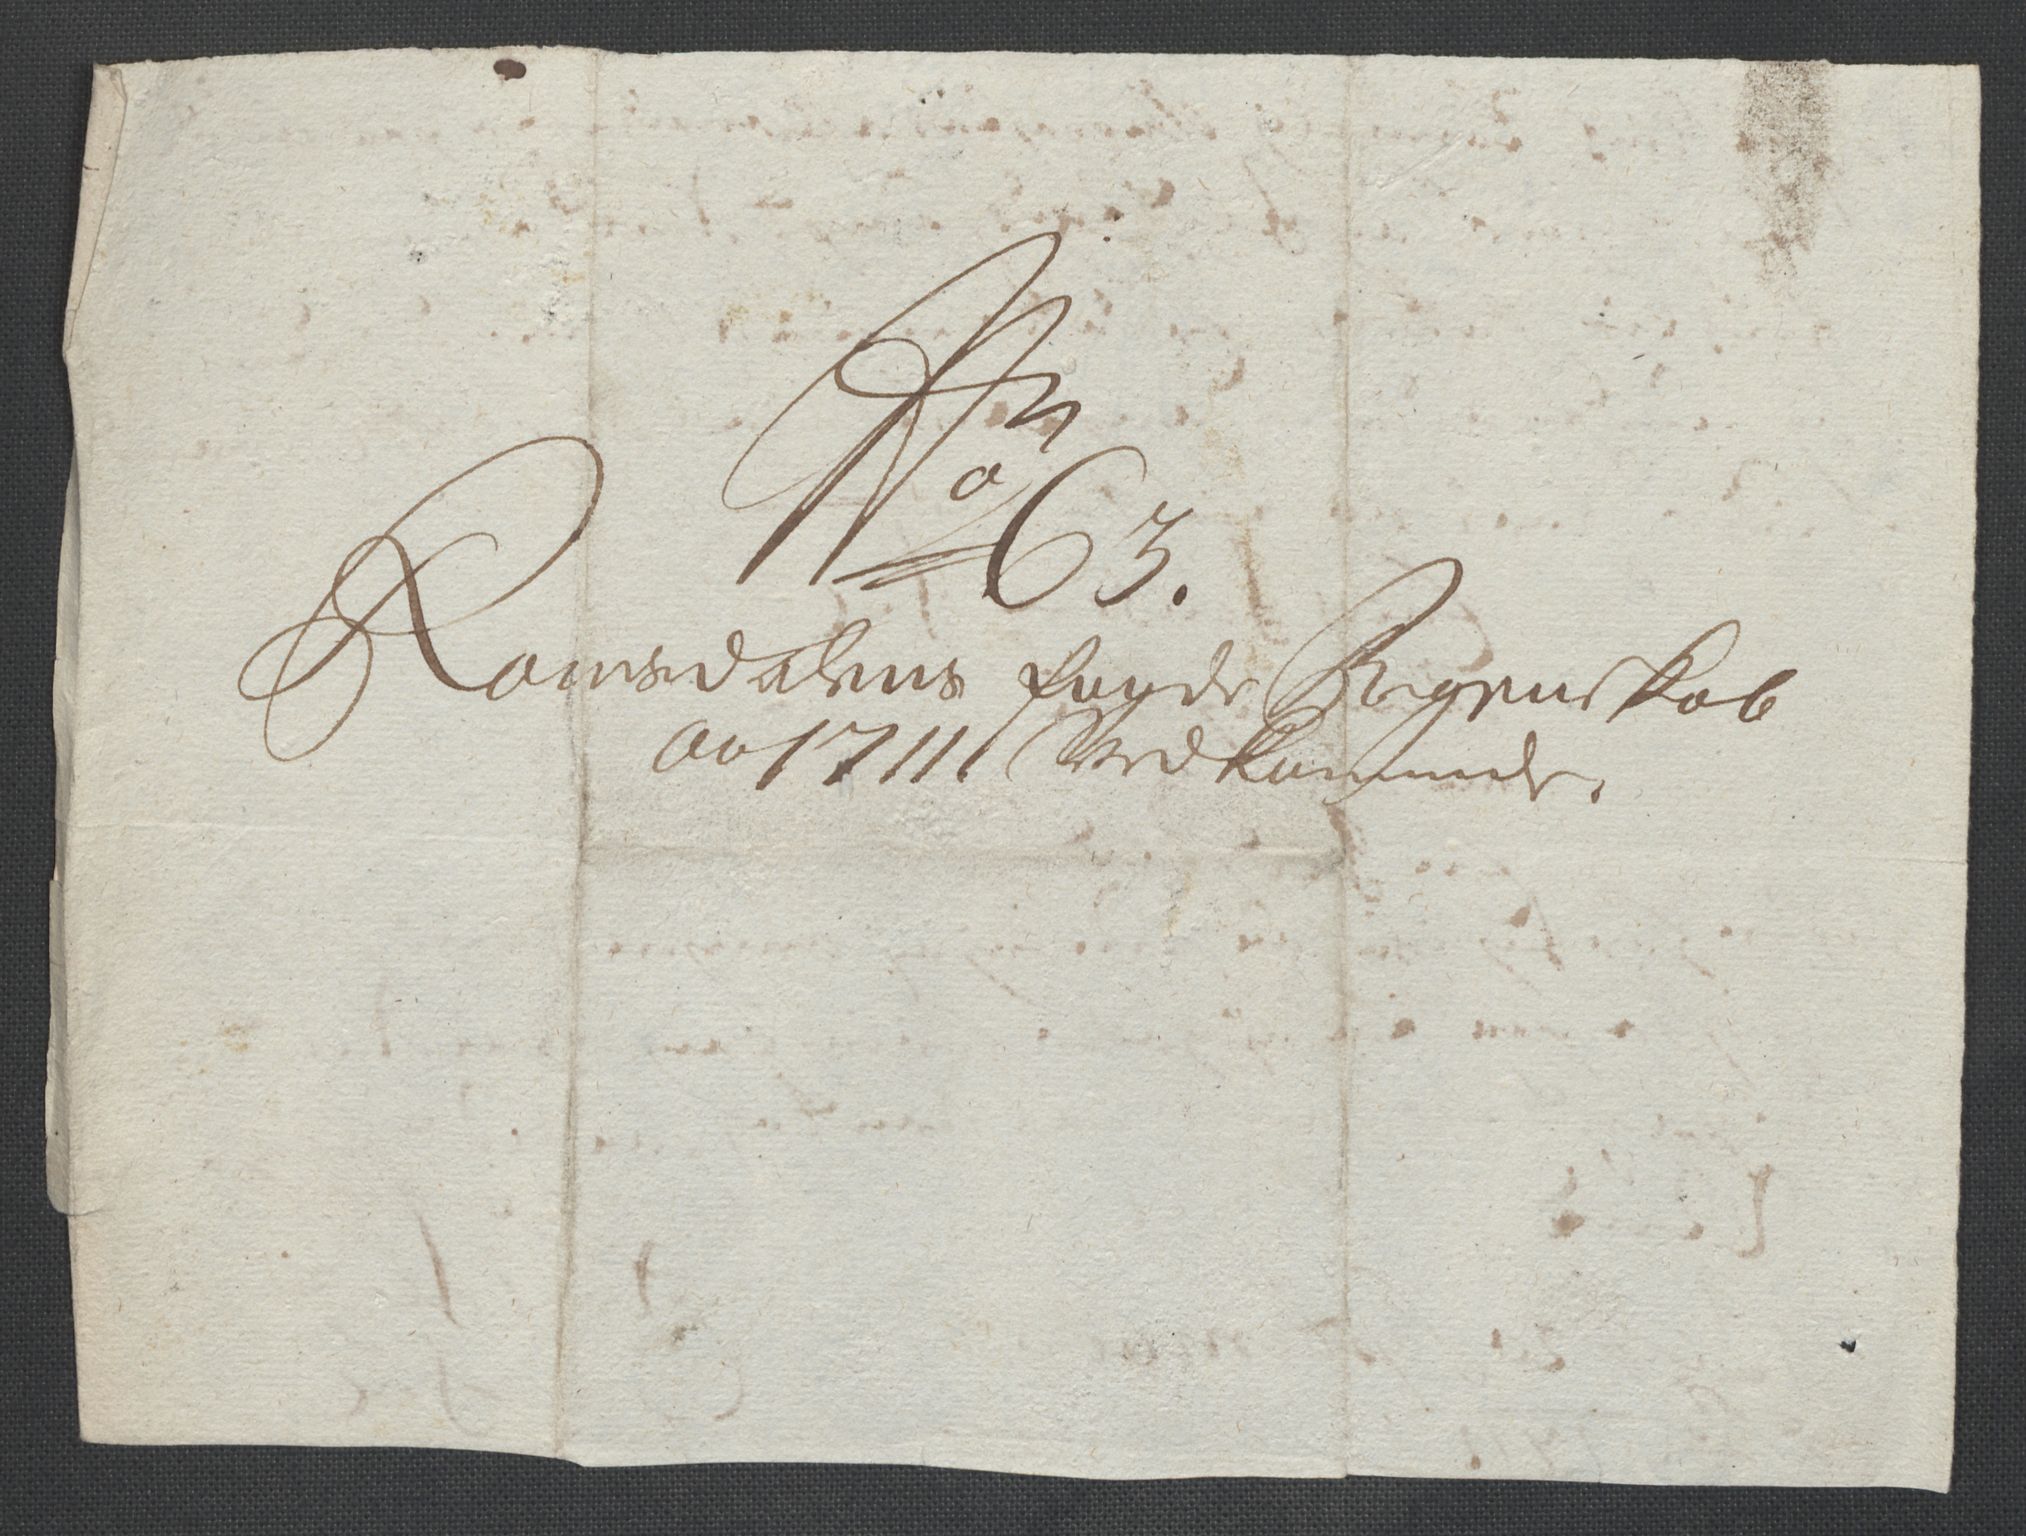 No 63.
Romsdalens fogde Regenskab
Ao 1711 Vedkommende.